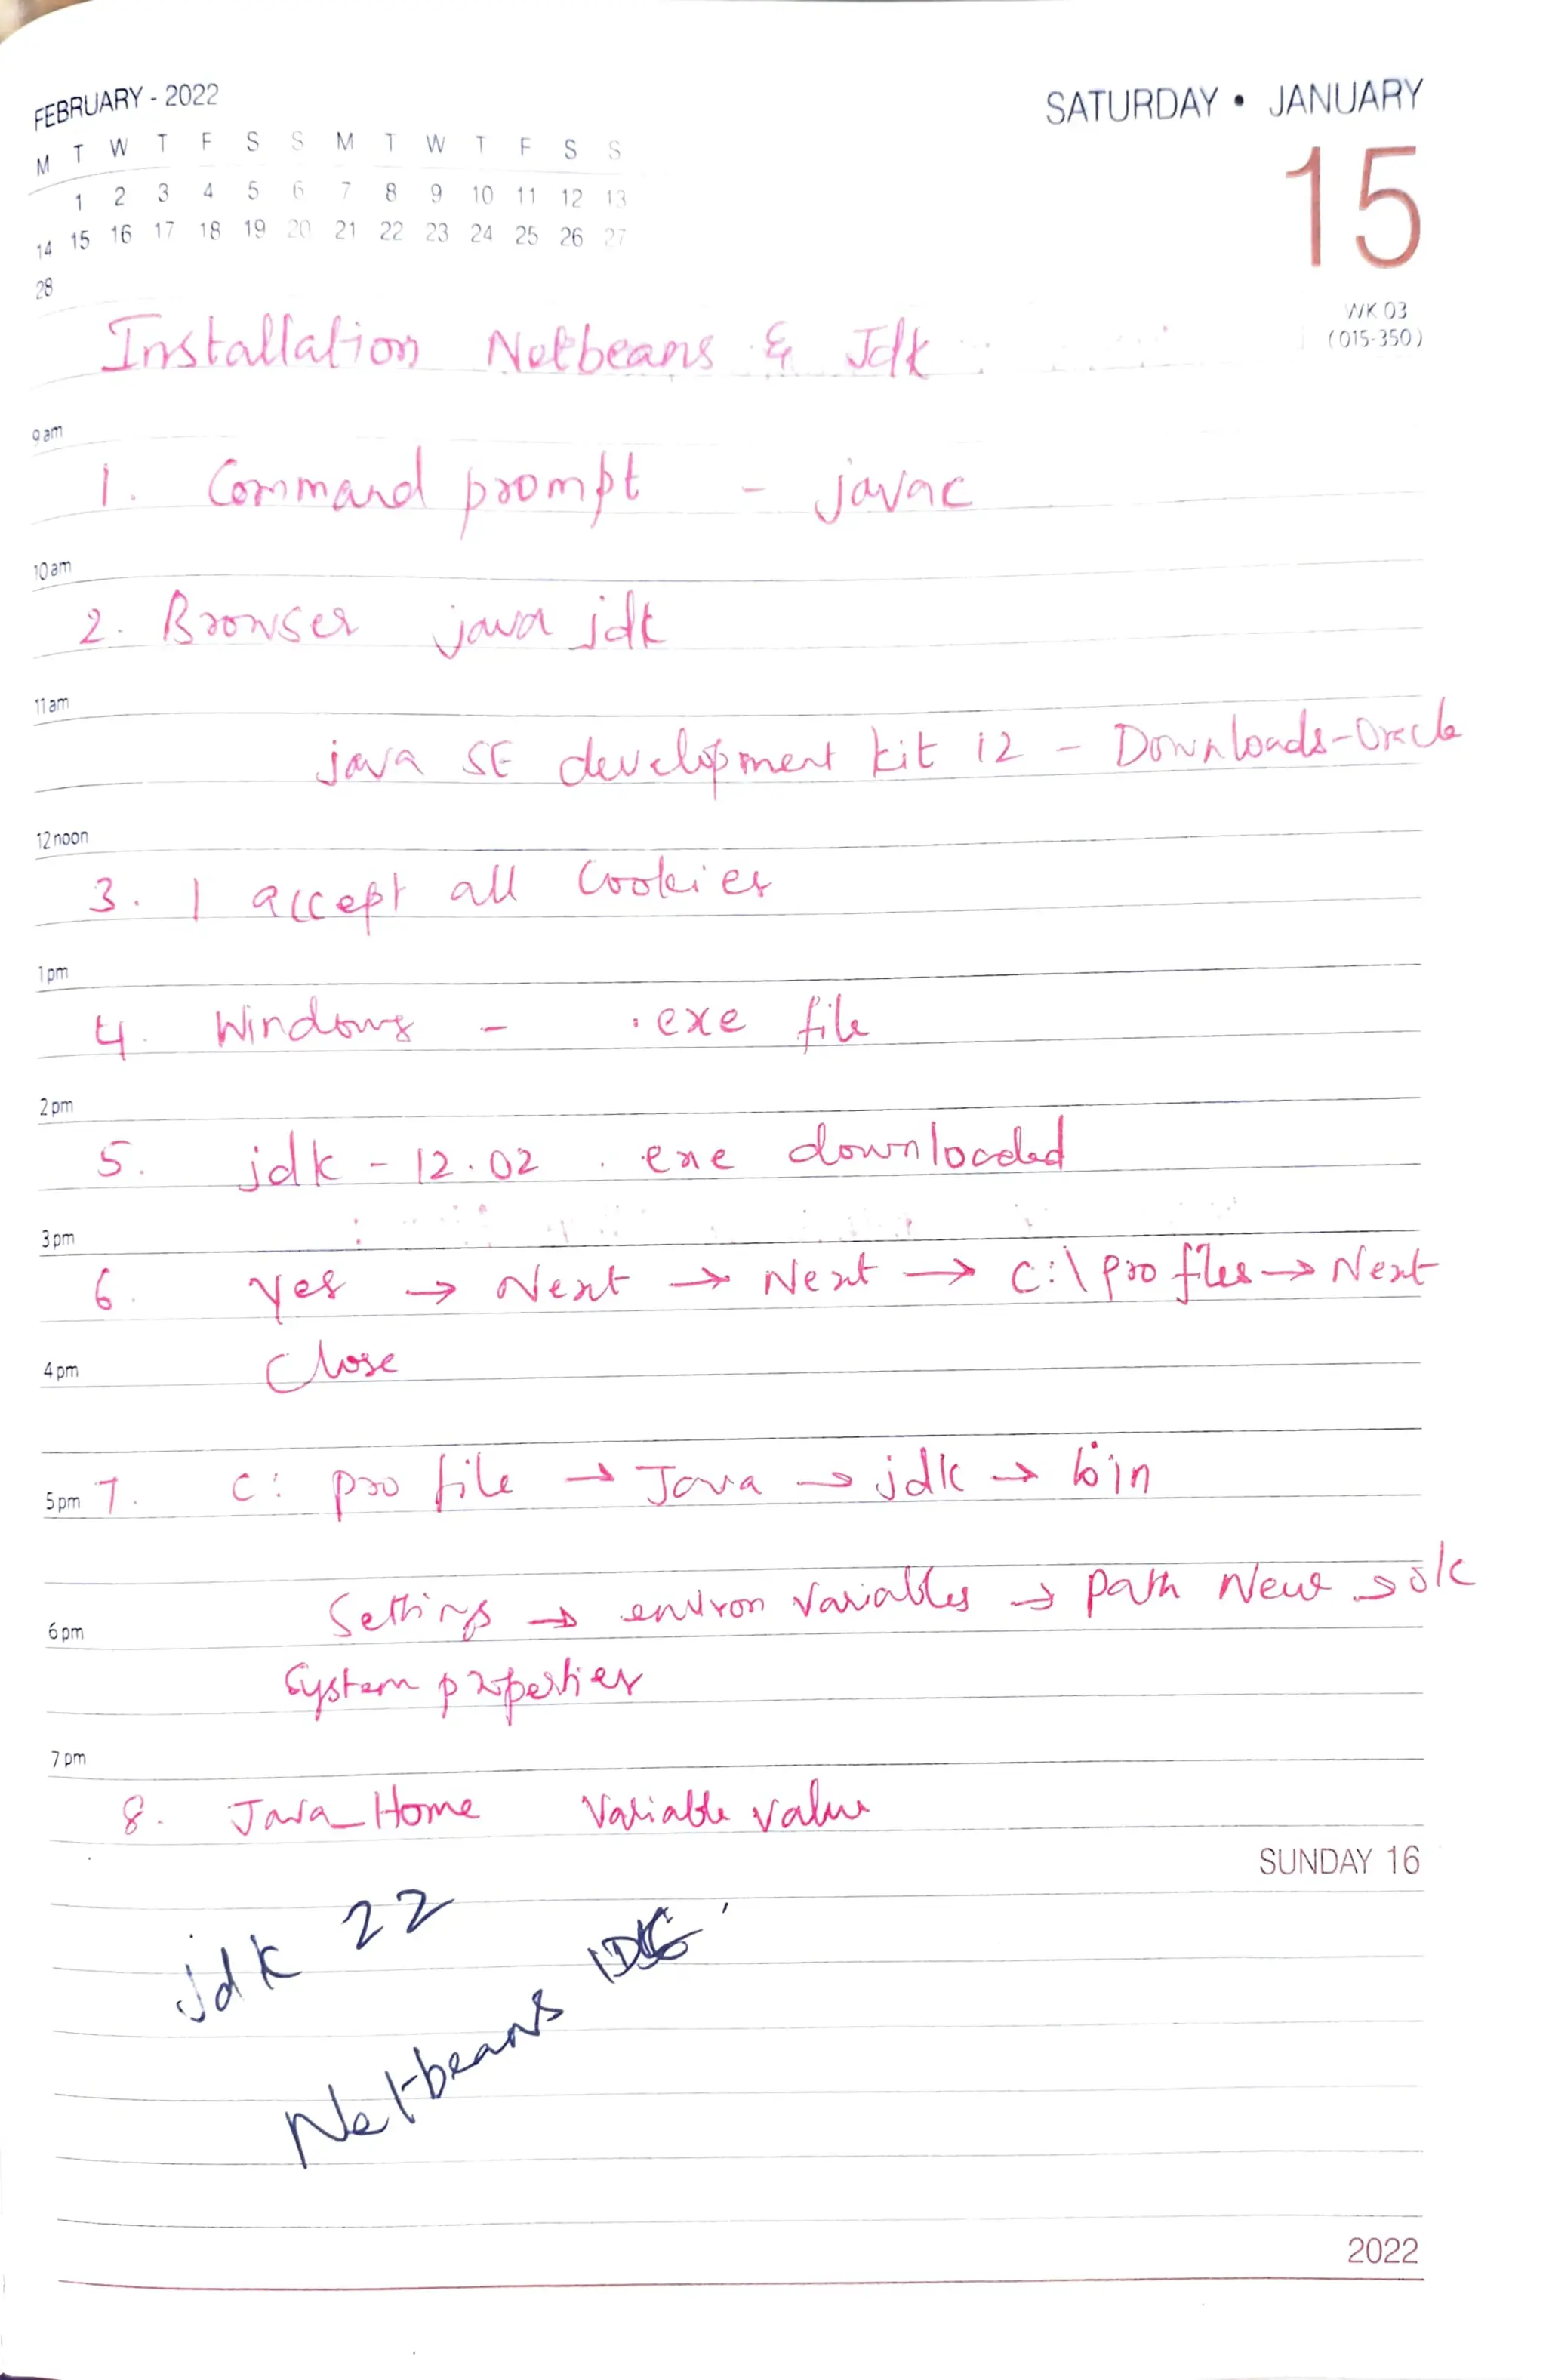 FEBRUARY - 2022
M T W T F S S M T W T F S S
1 2 3 4 5 6 7 8 9 10 11 12 13
14 15 16 17 18 19 20 21 22 23 24 25 26 27
28
SATURDAY • JANUARY
15
WK 03
(015-350)
Installation Netbeans & Jdk
9 am
1. Command prompt - javac
10 am
2. Browser java jdk
11 am
java SE development kit 12 - Downloads-Oracle
12 noon
3. I accept all Cookies
1 pm
4. Windows - .exe file
2 pm
5. jdk - 12.02 . exe downloaded
3 pm
6. Yes → Next → Next → C:\ pro files → Next
Close
4 pm
7. C: pro file → Java → jdk → bin
5 pm
Settings → environ variables → path New → ok
6 pm
System properties
7 pm
8. Java_Home Variable value
SUNDAY 16
jdk 22
Netbeans IDE
2022